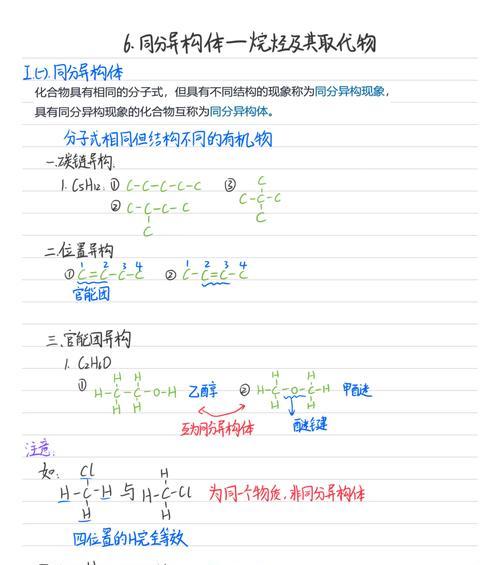 6.同分异构体—烷烃及其取代物
I.(-).同分异构体
化合物具有相同的分子式，但具有不同结构的现象称为同分异构现象，
具有同分异构现象的化合物互称为同分异构体。
分子式相同但结构不同的有机物
一.碳链异构.
1. C5H12: ① C-C-C-C-C ③ C
C-C-C
② C-C-C-C C
C
二.位置异构
1 2 3 4 1 2 3 4
① C=C-C-C ② C-C=C-C
官能团
三.官能团异构
1. C2H6O
① H H ② H H
H-C-C-O-H 乙醇 H-C-O-C-H 甲醚
H H H H
互为同分异构体 醚键
注意:
如: Cl H
H-C-H 与 H-C-Cl 为同一个物质,非同分异构体
H H
四位置的H完全等效